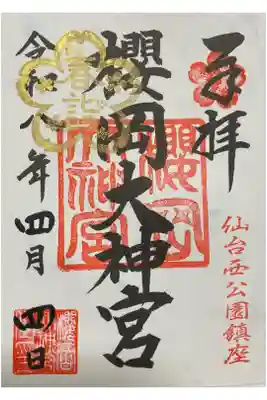 奉拝
仙台西公園鎮座
櫻岡大神宮
櫻岡
大神宮
春詣
令和八年四月
四日